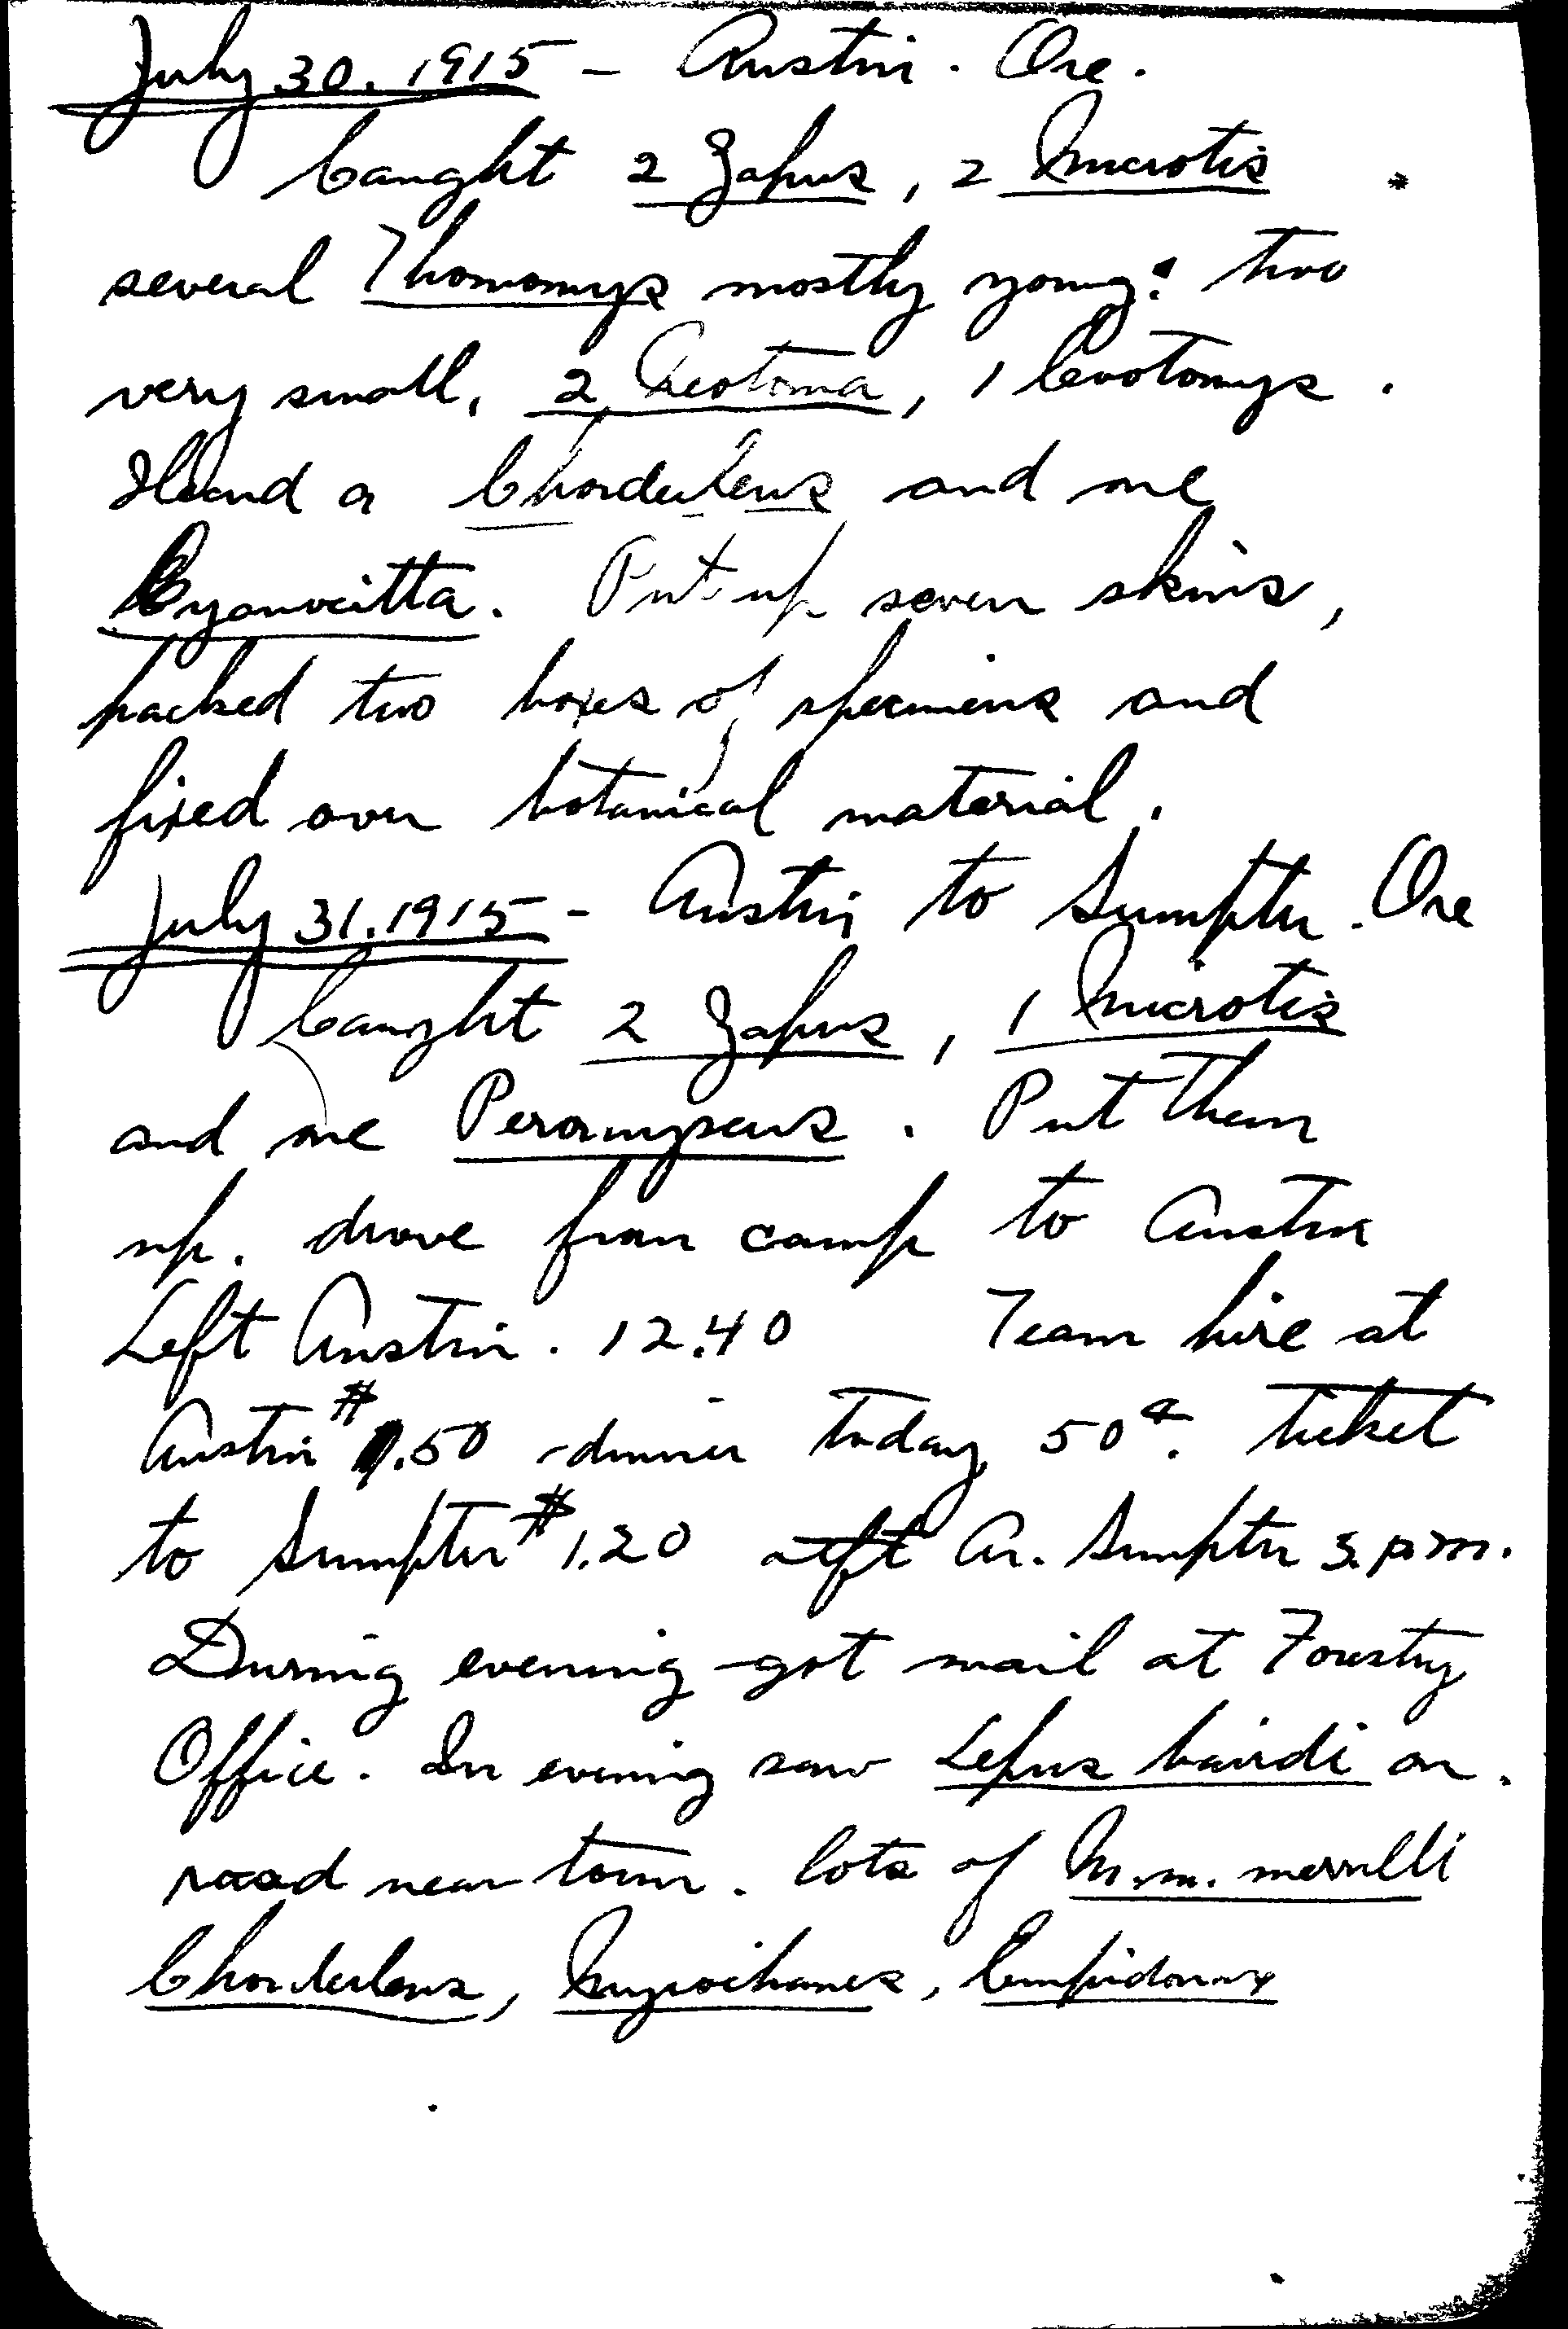 July 30. 1915 - Austin. Ore.
Caught 2 Zapus, 2 Microtis
several Thomomys mostly young: two
very small, 2 Neotoma, 1 Evotomys.
Heard a Chordeiles and one
Cyanocitta. Put up seven skins,
packed two boxes of specimens and
fixed over botanical material.
July 31. 1915 - Austin to Sumpter. Ore
Caught 2 Zapus, 1 Microtis
and one Peromyscus. Put them
up. drove from camp to Austin
Left Austin. 12.40 Team hire at
Austin $1.50 dinner today 50¢. ticket
to Sumpter $1.20 Ar. Sumpter 3. p.m.
During evening got mail at Forestry
Office. In evening saw Lepus bairdi on
road near town. lots of M.m. merrilli
Chordeiles, Myiochanes, Empidonax